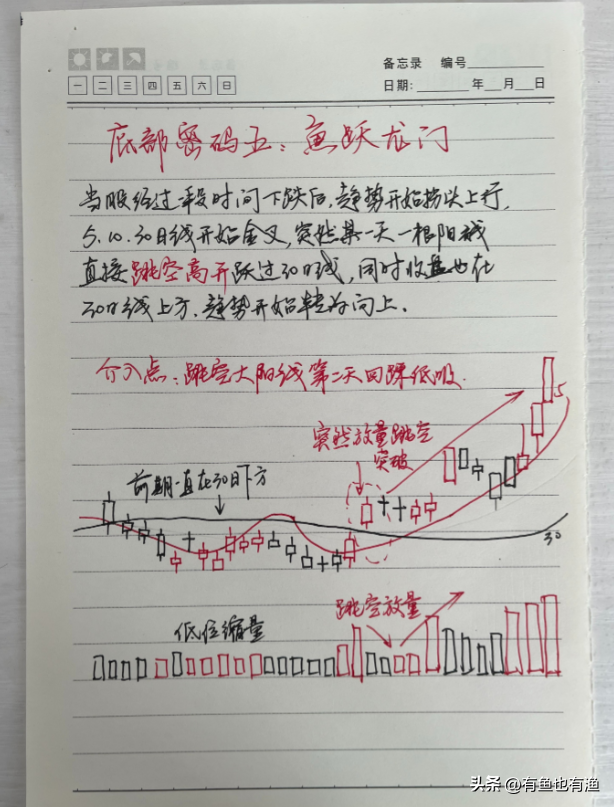 备忘录 编号
一 二 三 四 五 六 日
日期: 年 月 日
底部密码五:鱼跃龙门
当股经过一段时间下跌后,趋势开始拐以上行,
5.10.30日线开始金叉,突然某一天一根阳线
直接跳空高开跃过30日线,同时收盘也在
30日线上方.趋势开始转为向上.
介入点:跳空大阳线第二天回踩低吸.
突然放量跳空
突破
5
前期一直在30日下方
30
跳空放量
低位缩量
头条 @有鱼也有渔